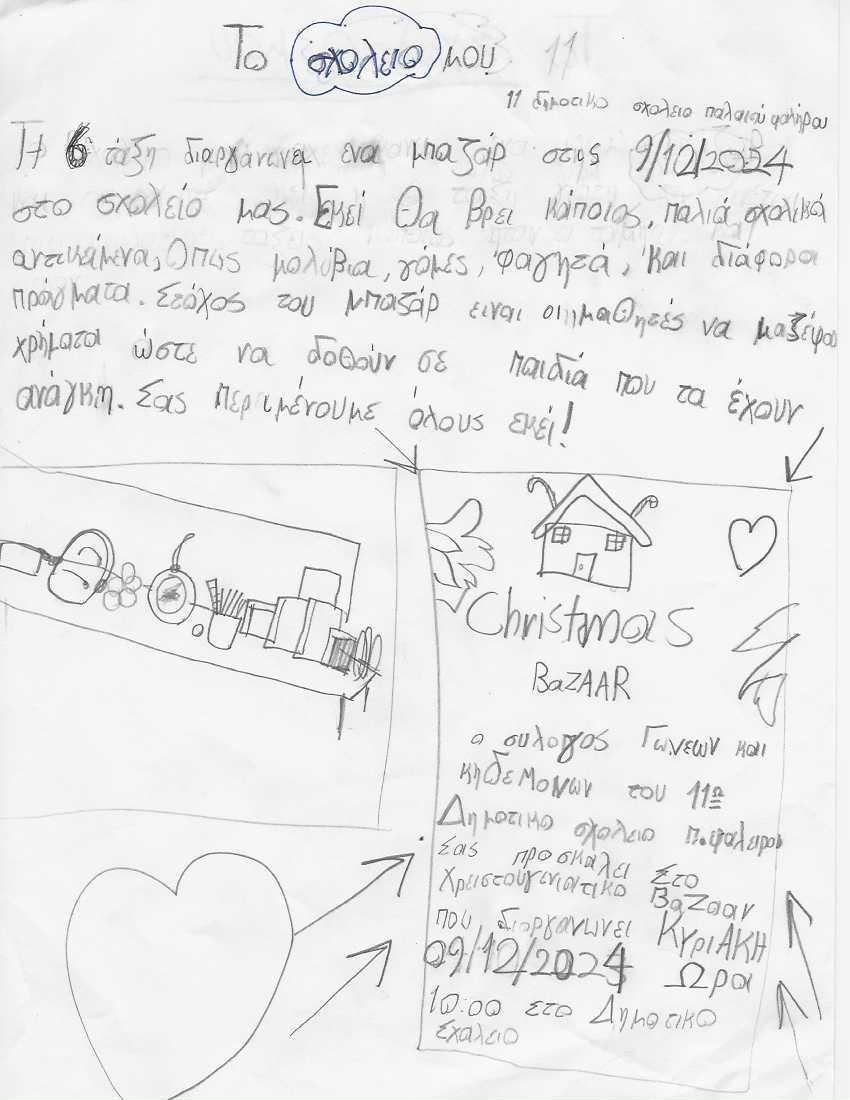 Το σχολειο μου 11
11 δημοτικο σχολειο παλαιού φαλήρου
Τη 6 τάξη διοργάνωνει ενα μπαζάρ στις 9/12/2024
στο σχολείο μας. Εκεί θα βρει κάποιος, παλιά, σχολικά
αντικείμενα, Οπως μολύβια, γόμες, φαγητά, και διάφορα
πράγματα. Στόχος του Μπαζάρ ειναι οι μαθητές να μαζέψου
χρήματα ώστε να δοθούν σε παιδιά που τα έχουν
ανάγκη. Σας περιμένουμε όλους εκεί!
Christmas
BaZAAR
ο συλογος Γωνεων και
κηδεμονων του 11ο
Δημοτικο σχολειο π. φαλειρου
Σας προσκαλει Στο
Χρειστουγενιατικο BaZaαν
που διοργανωνει ΚΥριΑΚΗ
09/12/2024 Ωρα
10:00 Στο Δημοτικο
Σχαλειο